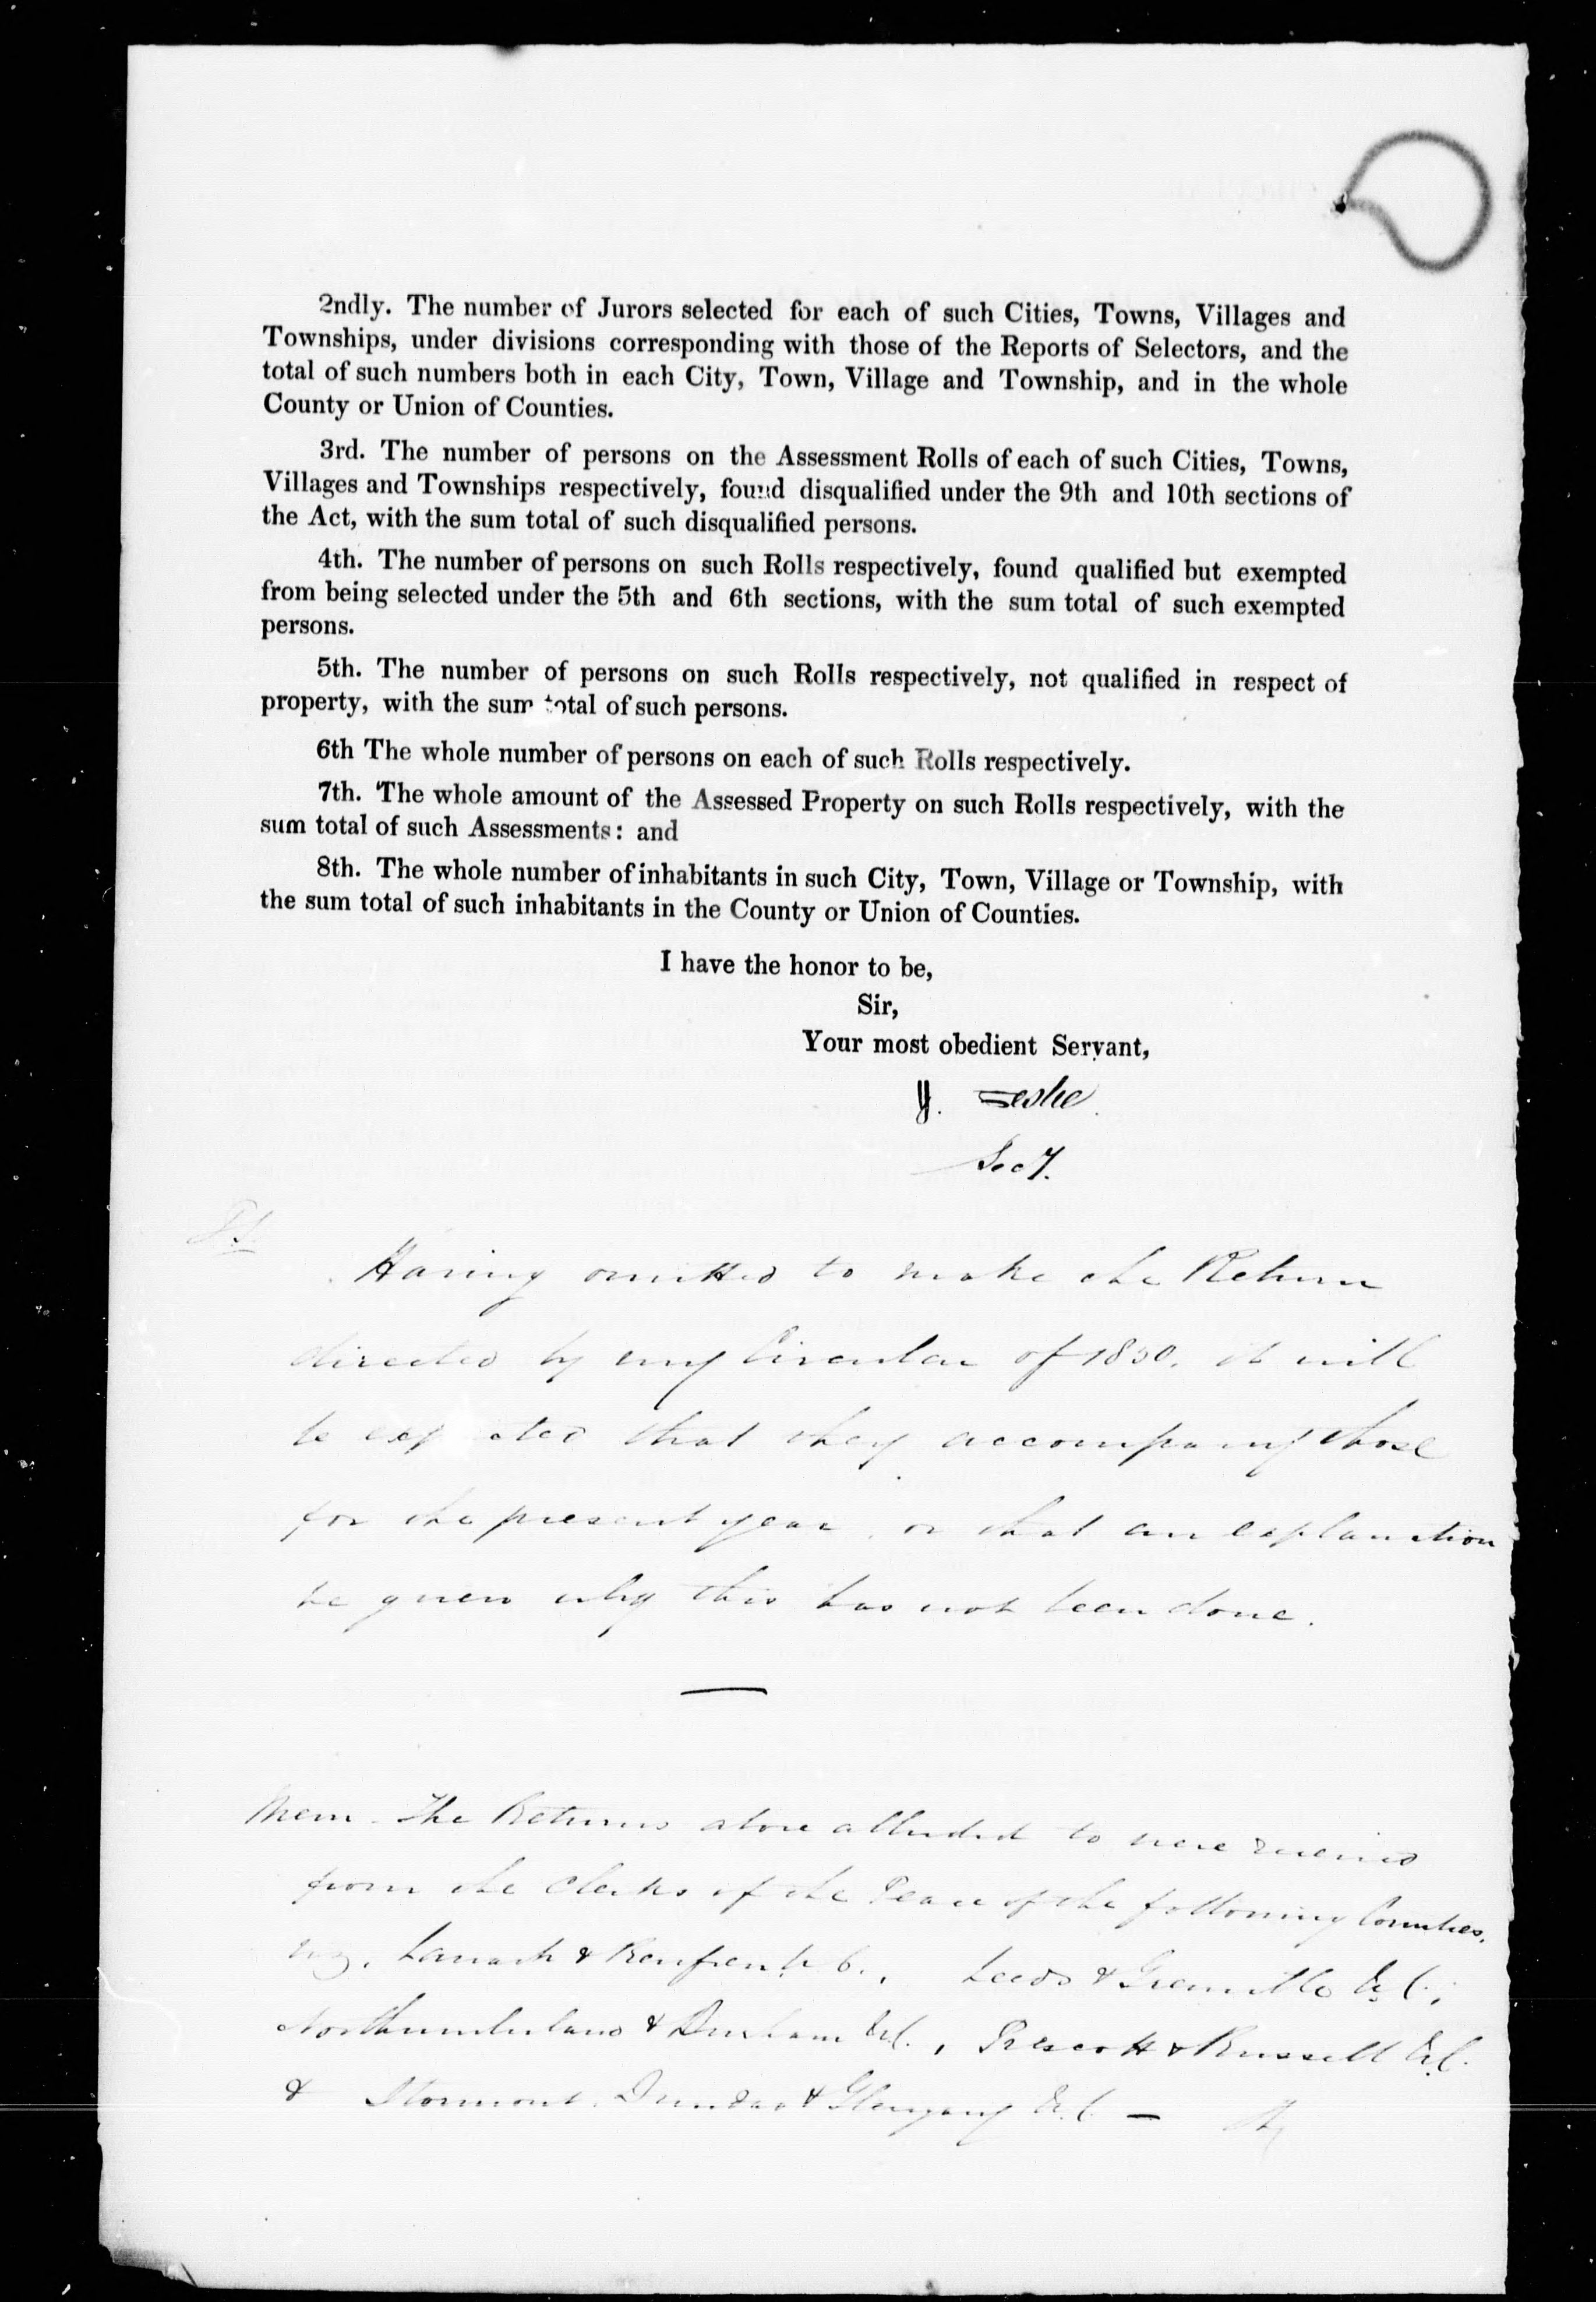 2ndly. The number of Jurors selected for each of such Cities, Towns, Villages and
Townships, under divisions corresponding with those of the Reports of Selectors, and the
total of such numbers both in each City, Town, Village and Township, and in the whole
County or Union of Counties.
3rd. The number of persons on the Assessment Rolls of each of such Cities, Towns,
Villages and Townships respectively, found disqualified under the 9th and 10th sections of
the Act, with the sum total of such disqualified persons.
4th. The number of persons on such Rolls respectively, found qualified but exempted
from being selected under the 5th and 6th sections, with the sum total of such exempted
persons.
5th. The number of persons on such Rolls respectively, not qualified in respect of
property, with the sum total of such persons.
6th The whole number of persons on each of such Rolls respectively.
7th. The whole amount of the Assessed Property on such Rolls respectively, with the
sum total of such Assessments: and
8th. The whole number of inhabitants in such City, Town, Village or Township, with
the sum total of such inhabitants in the County or Union of Counties.
I have the honor to be,
Sir,
Your most obedient Servant,
Leslie
Secy.
PS
Having omitted to make the Return
directed by my Circular of 1850. it will
be expected that they accompany those
for the present year, or that an explanation
be given why this has not been done.
Mem. The Returns above alluded to were received
from the Clerks of the Peace of the following Counties,
viz, Lanark & Renfrew, Leeds & Grenville &c;
Northumberland & Durham &c., Prescott & Russell &c.
& Stormont, Dundas & Glengary &c. —